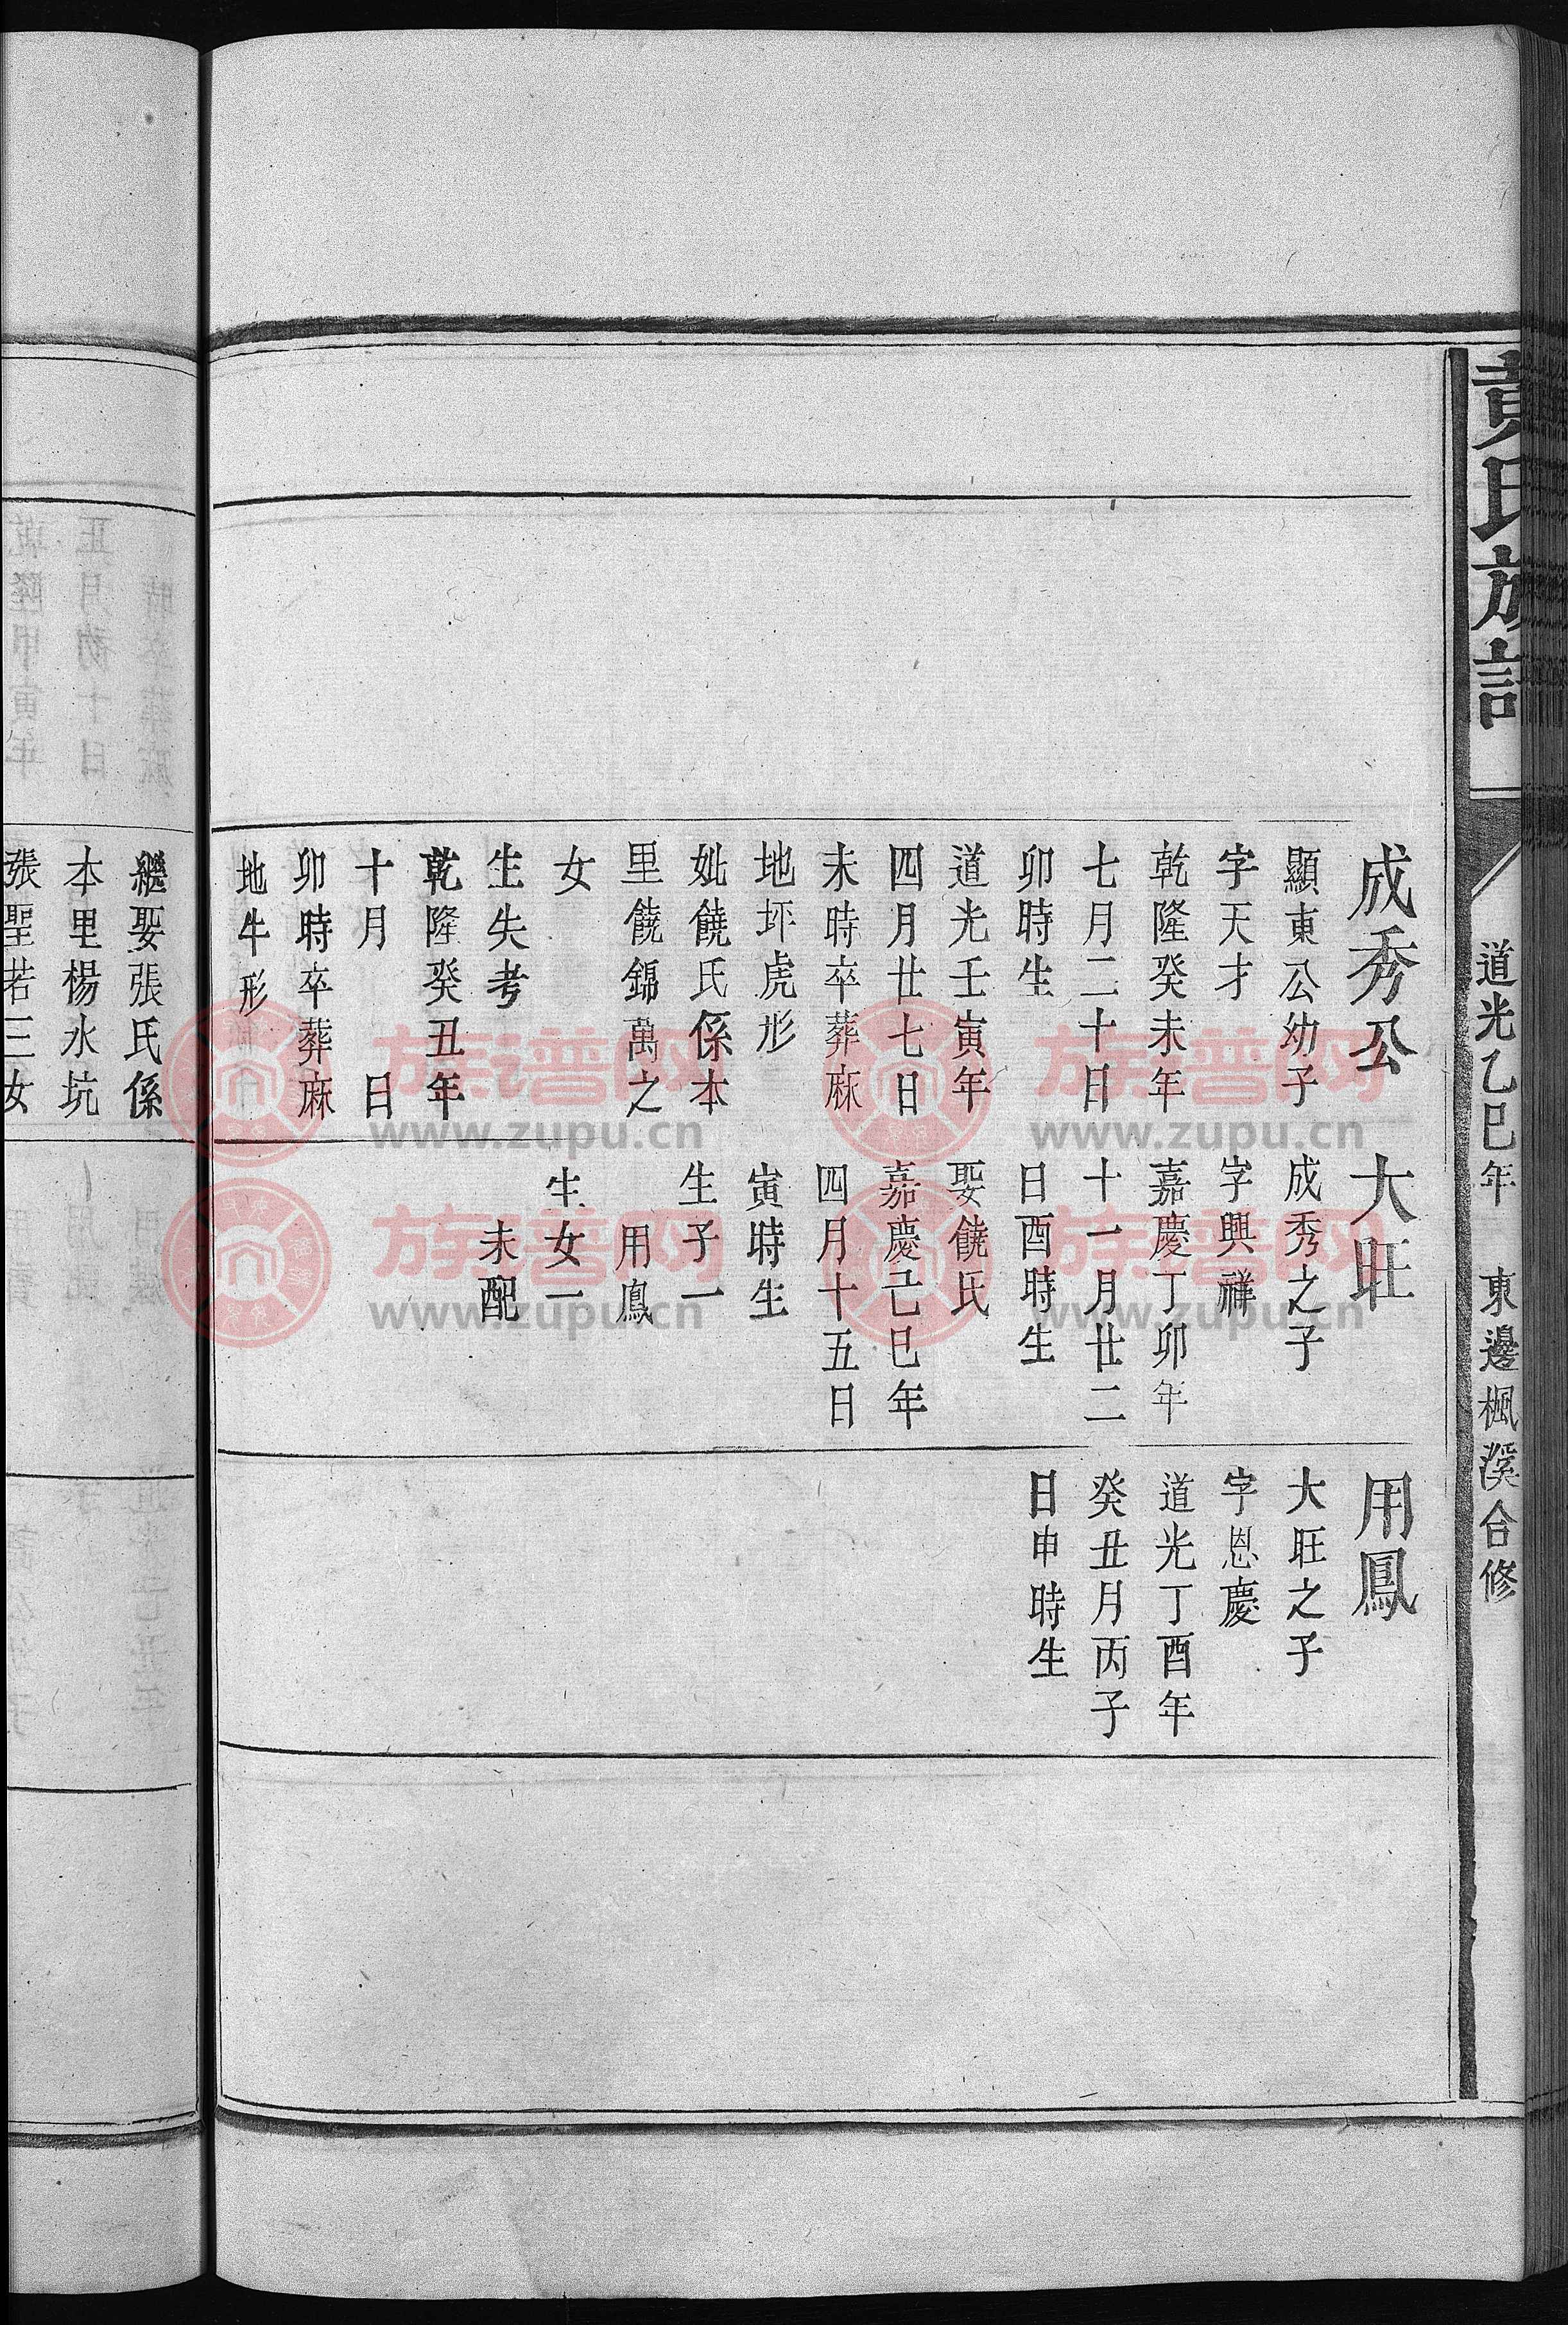 黄氏族譜
道光乙巳年 東邊楓溪合修
成秀公
顯東公幼子
字天才
乾隆癸未年
七月二十日
卯時生
道光壬寅年
四月廿七日
未時卒葬麻
地坏虎形
妣饒氏係本
里饒錦萬之
女
生失考
乾隆癸丑年
十月 日
卯時卒葬麻
地牛形
繼娶張氏係
本里楊水坑
張聖若三女
大旺
成秀之子
字興祥
嘉慶丁卯年
十一月廿二
日酉時生
娶饒氏
嘉慶己巳年
四月十五日
寅時生
生子一
用鳳
生女一
未配
用鳳
大旺之子
字恩慶
道光丁酉年
癸丑月丙子
日申時生
族谱网
www.zupu.cn
族谱网
www.zupu.cn
族谱网
www.zupu.cn
族谱网
www.zupu.cn